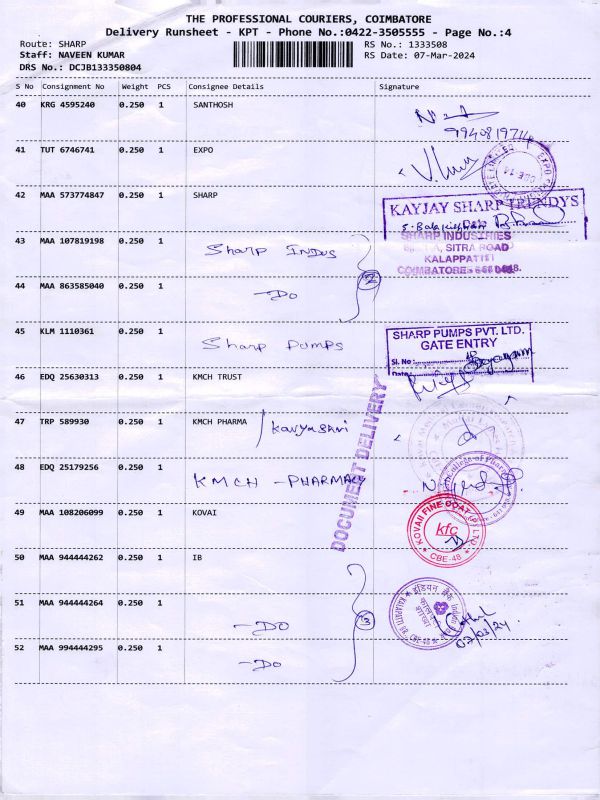 THE PROFESSIONAL COURIERS, COIMBATORE
Delivery Runsheet - KPT - Phone No.:0422-3505555 - Page No.:4
Route: SHARP RS No.: 1333508
Staff: NAVEEN KUMAR RS Date: 07-Mar-2024
DRS No.: DCJB133350804
S No Consignment No Weight PCS Consignee Details Signature
40 KRG 4595240 0.250 1 SANTHOSH
9940819714
41 TUT 6746741 0.250 1 EXPO
42 MAA 573774847 0.250 1 SHARP
KAYJAY SHARP TRENDYS
43 MAA 107819198 0.250 1 Sharp Indus
SHARP INDUSTRIES
SITRA ROAD
KALAPPATTI
COIMBATORE
2
44 MAA 863585040 0.250 1 -Do
45 KLM 1110361 0.250 1 Sharp Pumps
SHARP PUMPS PVT. LTD.
GATE ENTRY
Sl. No :
Date:
46 EDQ 25630313 0.250 1 KMCH TRUST
47 TRP 589930 0.250 1 KMCH PHARMA / Kavyashri
DOCUMENT DELIVERY
48 EDQ 25179256 0.250 1 KMCH - PHARMACY
49 MAA 108206099 0.250 1 KOVAI
kfc
CBE-48
50 MAA 944444262 0.250 1 IB
51 MAA 944444264 0.250 1 -Do
3
07/03/24
52 MAA 994444295 0.250 1 -Do